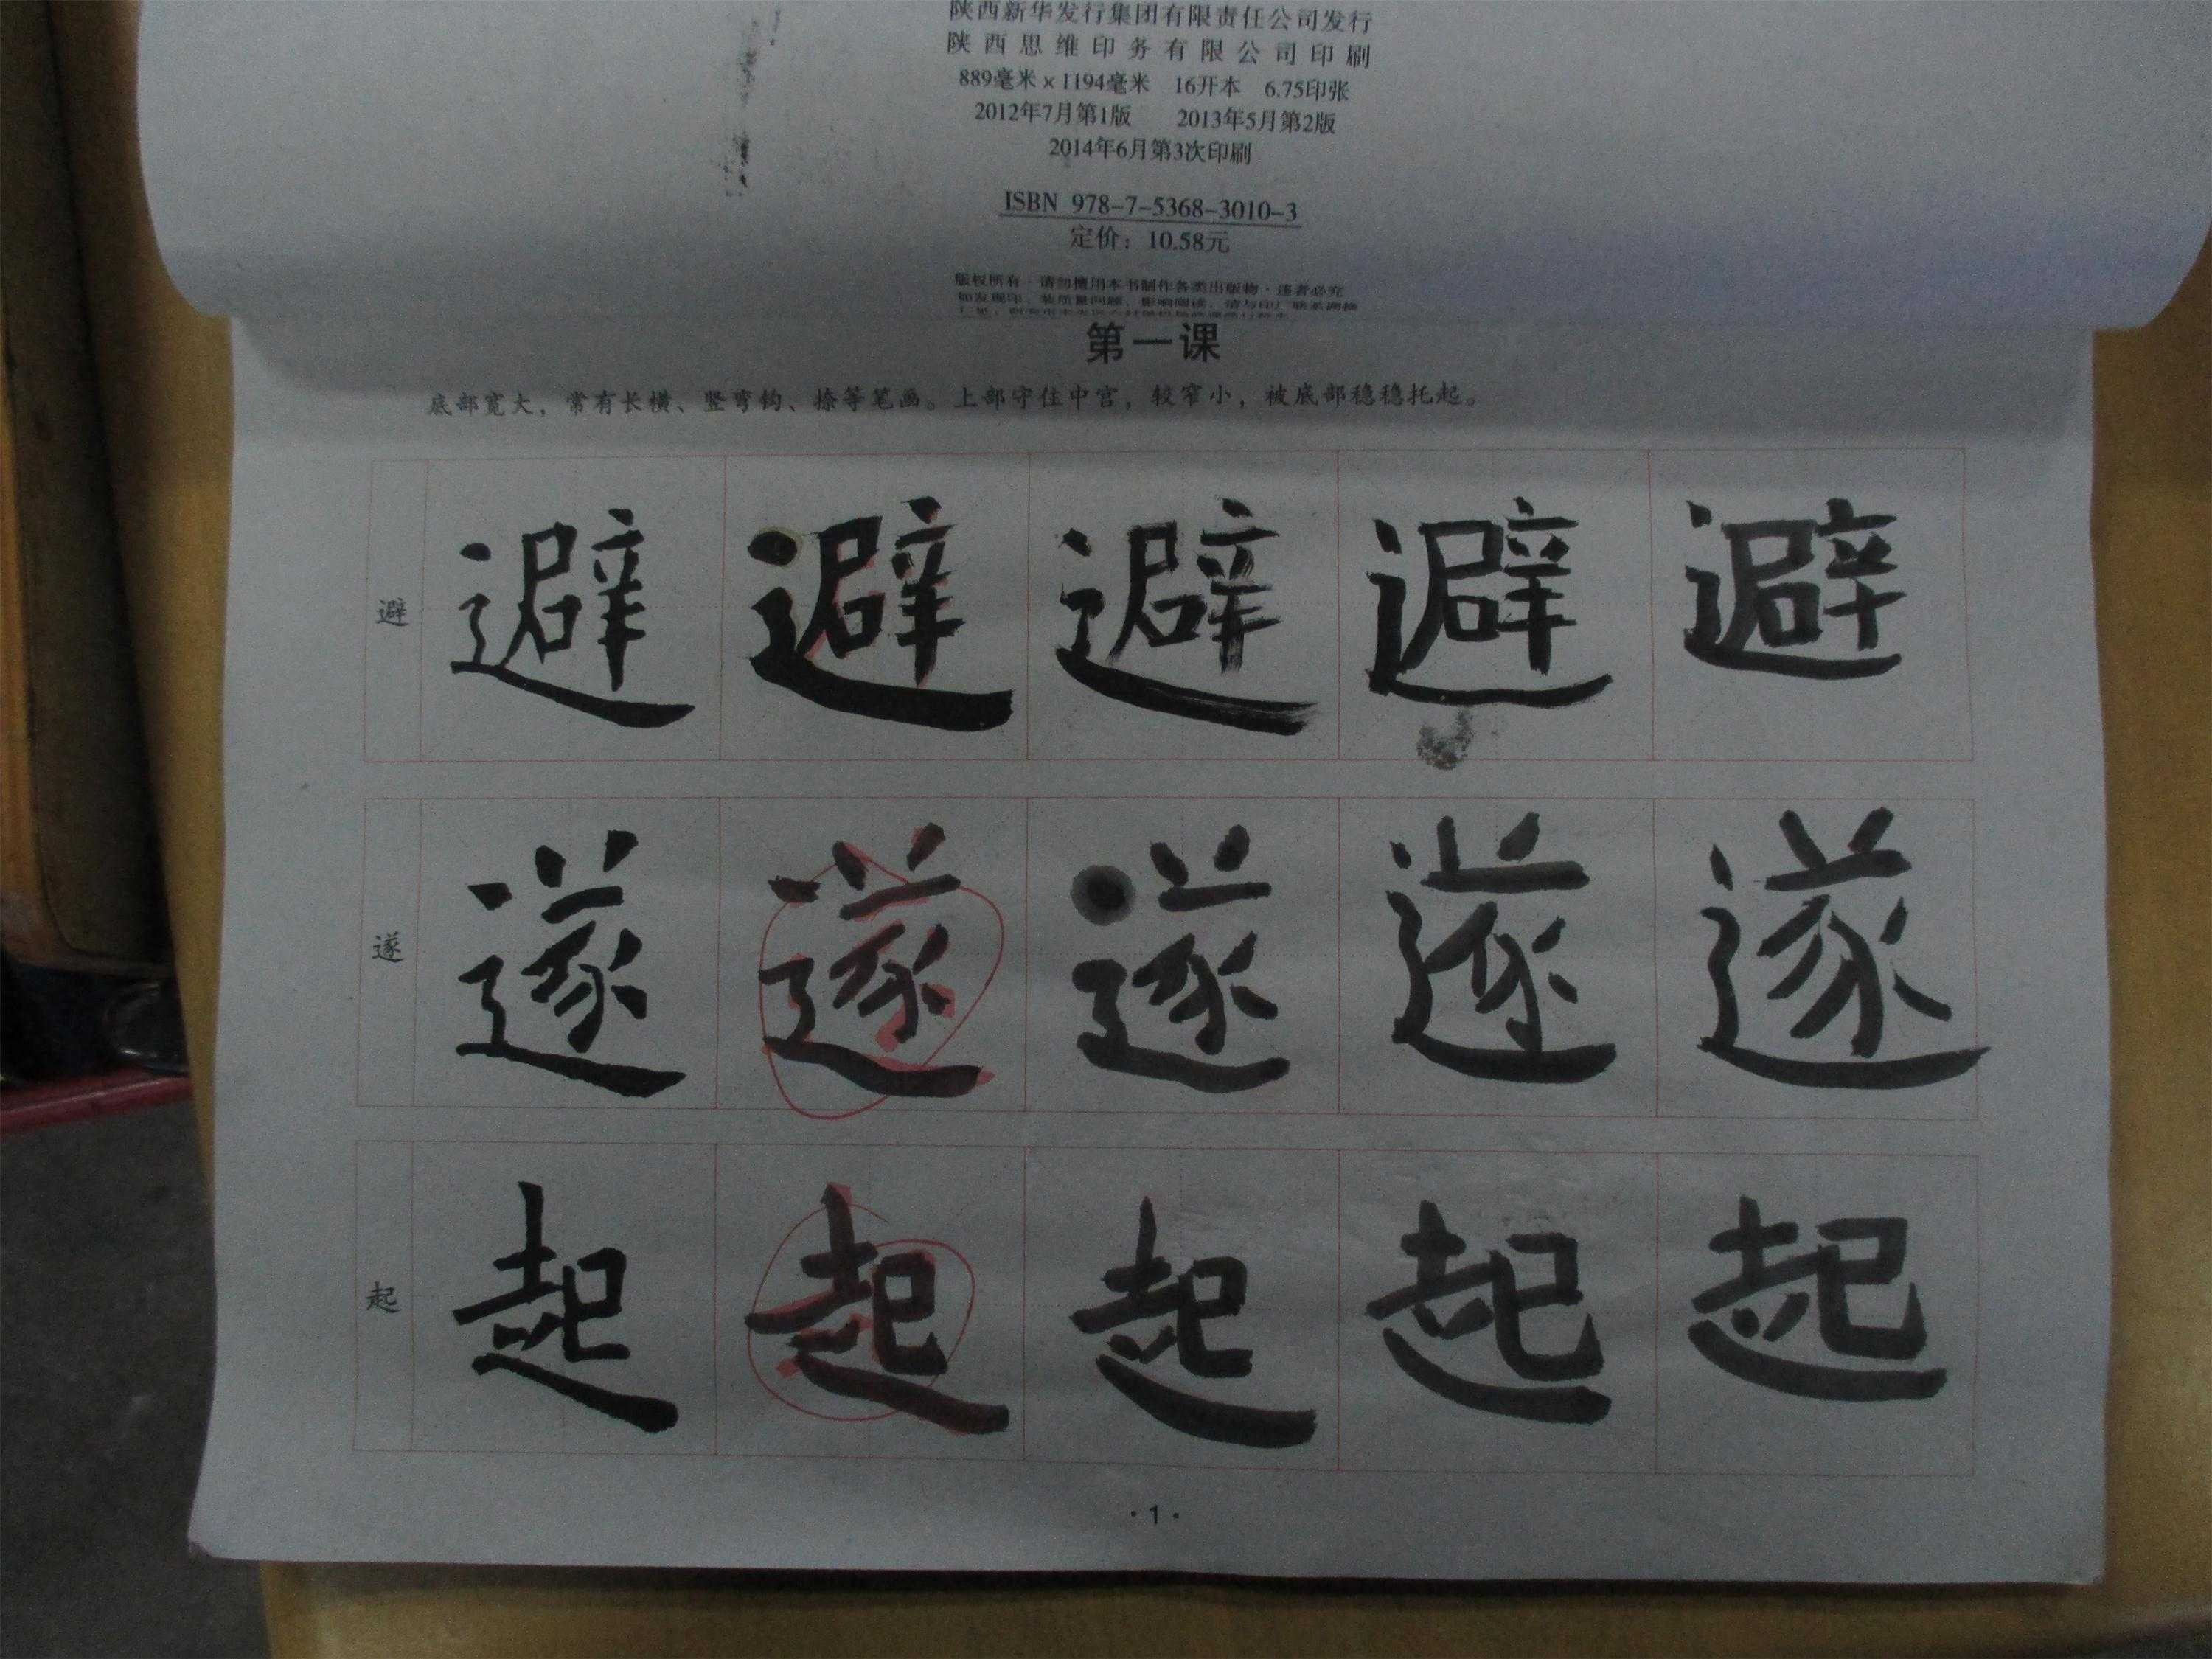 陕西新华发行集团有限责任公司发行
陕西思维印务有限公司印刷
889毫米×1194毫米 16开本 6.75印张
2012年7月第1版 2013年5月第2版
2014年6月第3次印刷
ISBN 978-7-5368-3010-3
定价：10.58元
版权所有·请勿擅用本书制作各类出版物·违者必究
如发现印、装质量问题，影响阅读，请与印厂联系调换
第一课
底部宽大，常有长横、竖弯钩、捺等笔画。上部守住中宫，较窄小，被底部稳稳托起。
避 避 避 避 避 避
遂 遂 遂 遂 遂 遂
起 起 起 起 起 起
·1·